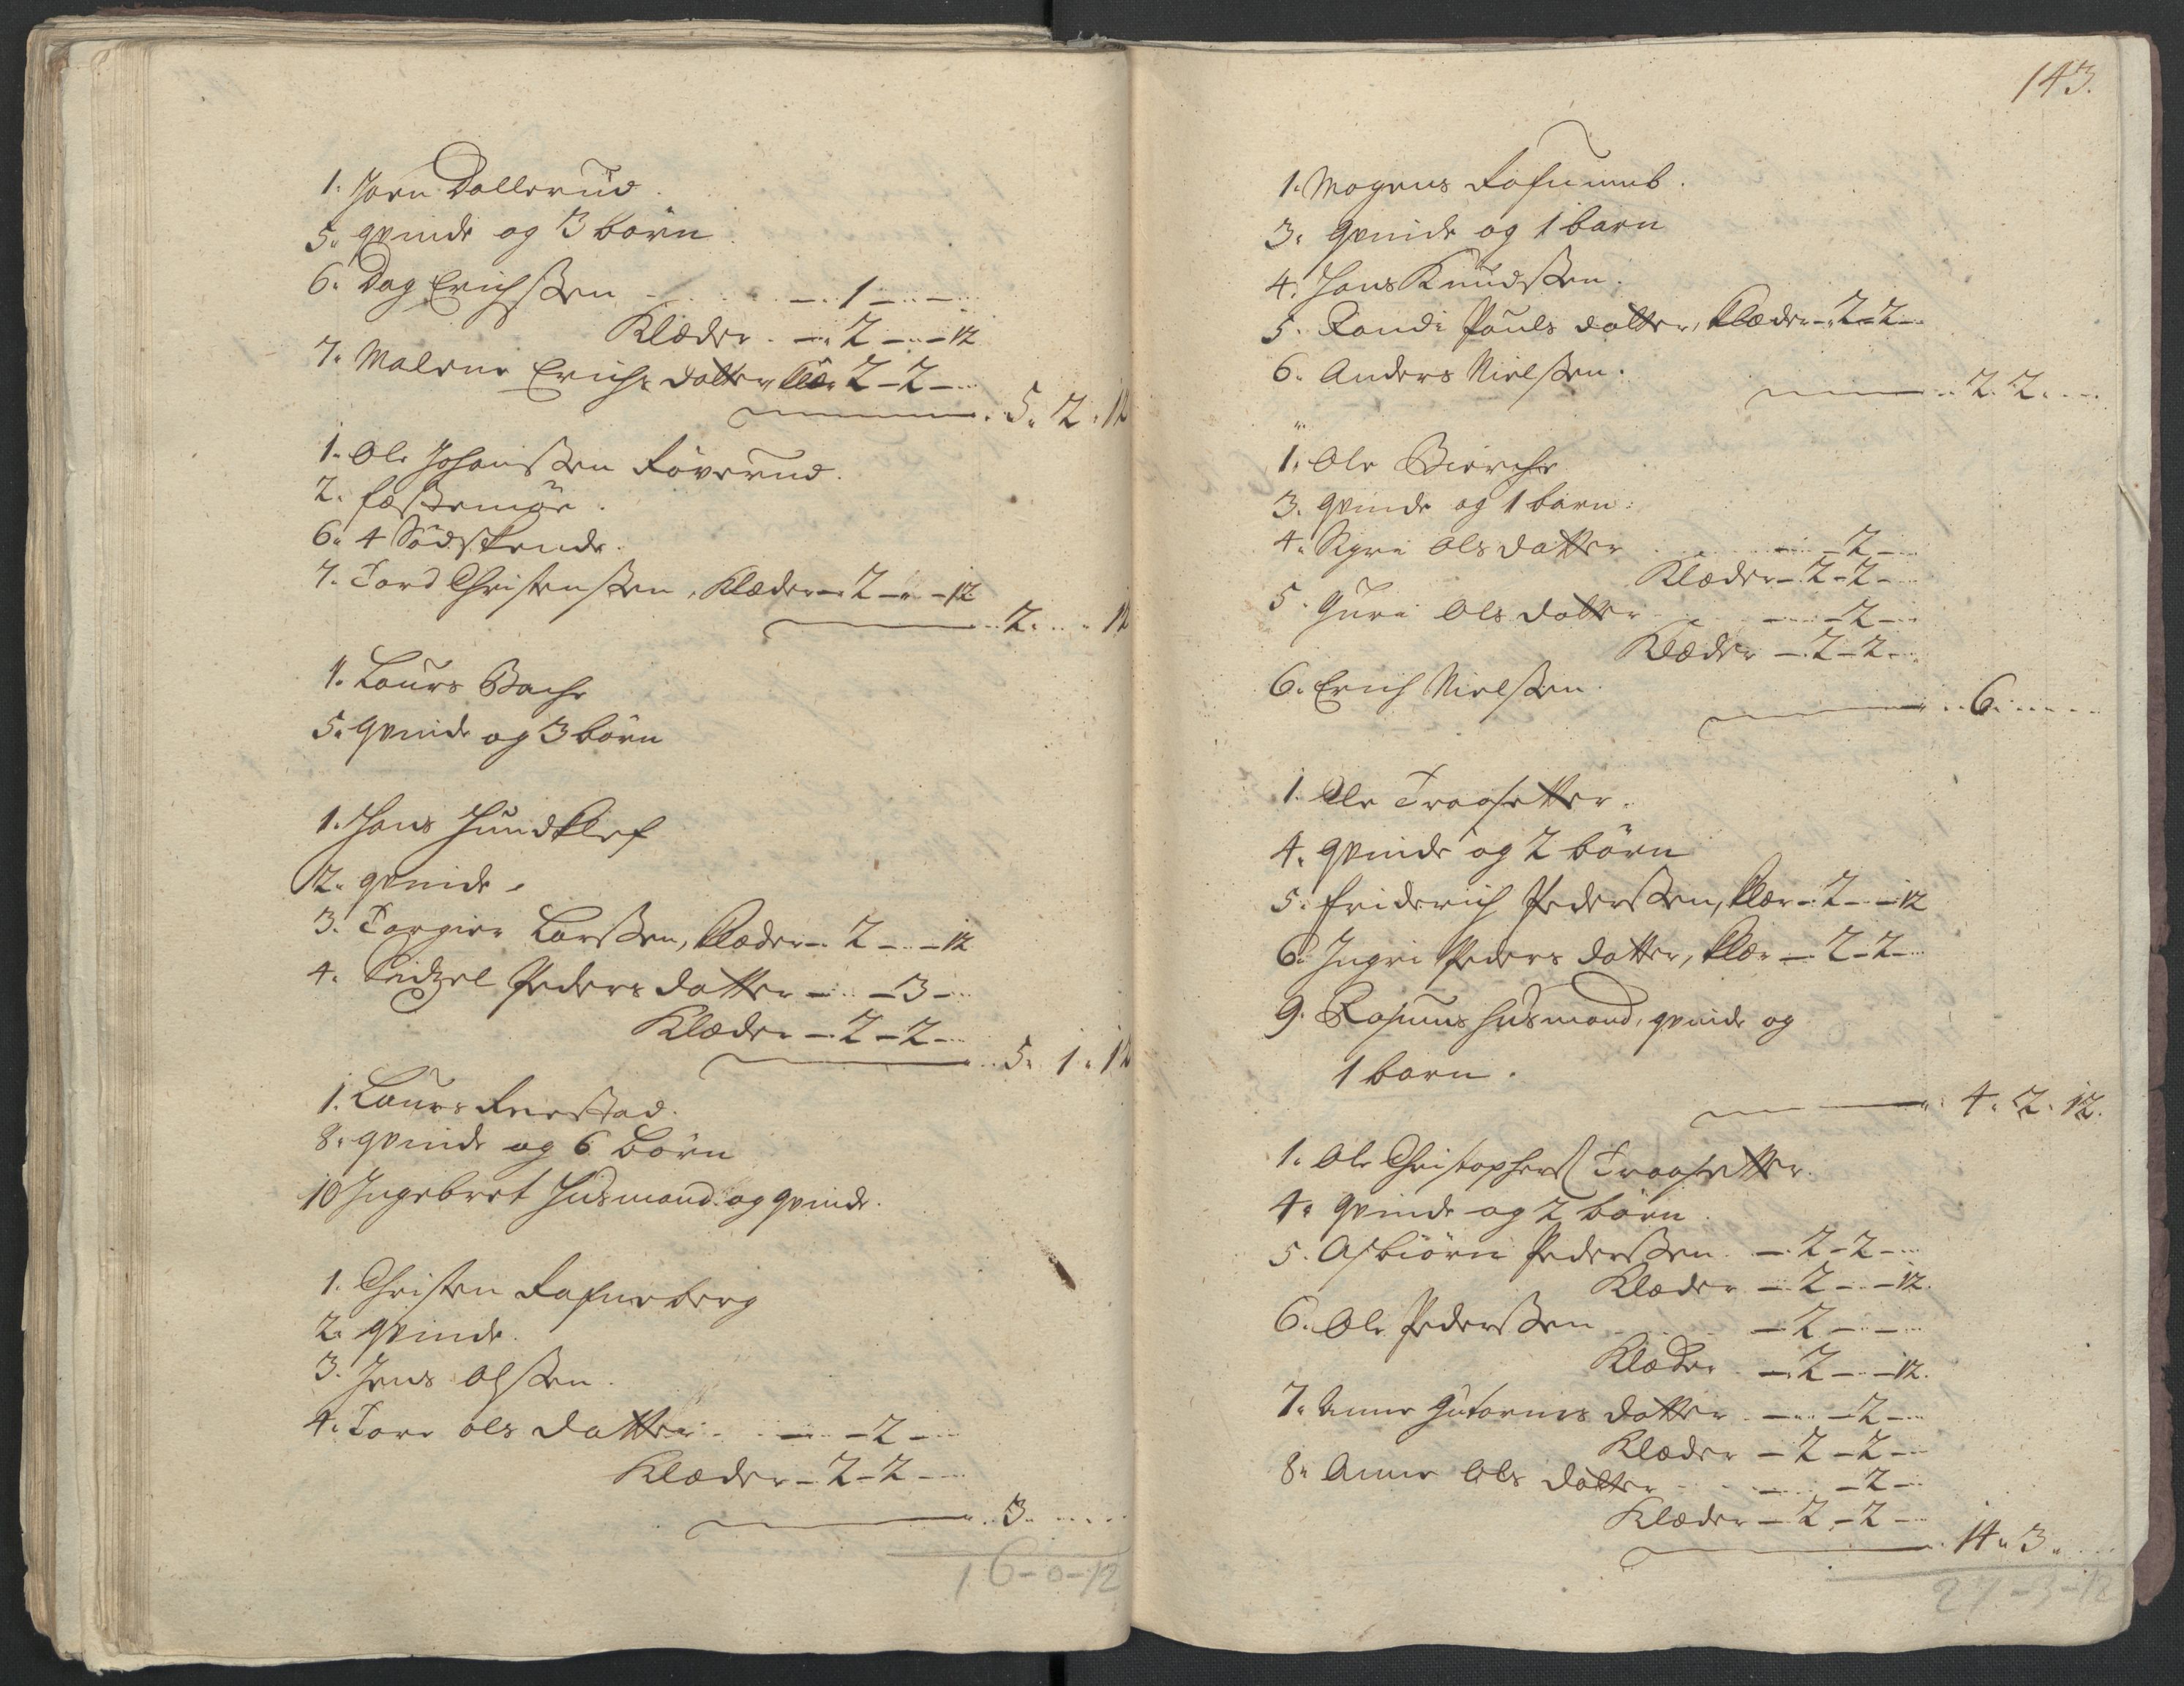 1. Jorn Dollerud.
5. qvinde og 3 börn
6. Dag Erichssen - - . 1 - -
Klæder - 2 - - 12
7. Malene Erichs datter klær 2 - 2 -
5. 2. 12
1. Ole Johanssen Röverud.
2. fæstemöe.
6. 4 Södskende.
7. Tord Christenssen, Klæder - 2 - - 12
2. . . 12
1. Laurs Bache
5. qvinde og 3 börn
1. Hans Hundklef
2. qvinde.
3. Torgier Larssen, klæder - 2 - - 12
4. Sidzel Peders datter - - 3 -
Klæder - 2 - 2 -
5. 1. 12
1. Laurs
8. qvinde og 6 Börn
10 Ingebret Husmand og qvinde.
1. Christen
2. qvinde.
3. Jens Olssen.
4. Tore Ols datter - - 2 -
Klæder - 2 - 2 -
3. . . .
16-0-12
143.
1. Mogens
3. qvinde og 1 barn
4. Hans Knudssen.
5. Randi Pouls datter, klæder - 2 - 2 -
6. Anders Nielssen.
2. 2. . .
1. Ole Bierche
3. qvinde og 1 barn.
4. Sigri Ols datter - - 2 -
Klæder - 2 - 2 -
5. Guri Ols datter - - 2 -
Klæder - 2 - 2 -
6. Erich Nielssen.
6. . . .
1. Ole Traasetter.
4. qvinde og 2 börn
5. Friderich Pederssen, klær - 2 - - 12
6. Ingri Peders datter, klær - 2 - 2 -
9. Rasmus husmand, qvinde og
1 barn.
4. 2. 12.
1. Ole Christophers Traasetter.
4. qvinde og 2 börn
5. Asbiörn Pederssen - 2 - 2 -
Klæder - 2 - - 12.
6. Ole Pederssen - 2 - -
Klæder - 2 - - 12.
7. Anne Gutorms datter - - 2 -
Klæder - 2 - 2 -
8. Anne Ols datter - - 2 -
Klæder - 2 - 2 -
14. 3. .
27-3-12